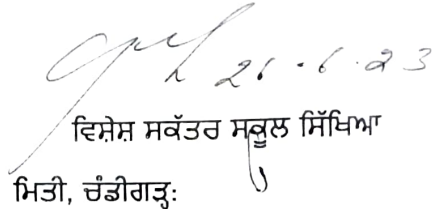 26.6.23
ਵਿਸ਼ੇਸ਼ ਸਕੱਤਰ ਸਕੂਲ ਸਿੱਖਿਆ
ਮਿਤੀ, ਚੰਡੀਗੜ੍ਹ: